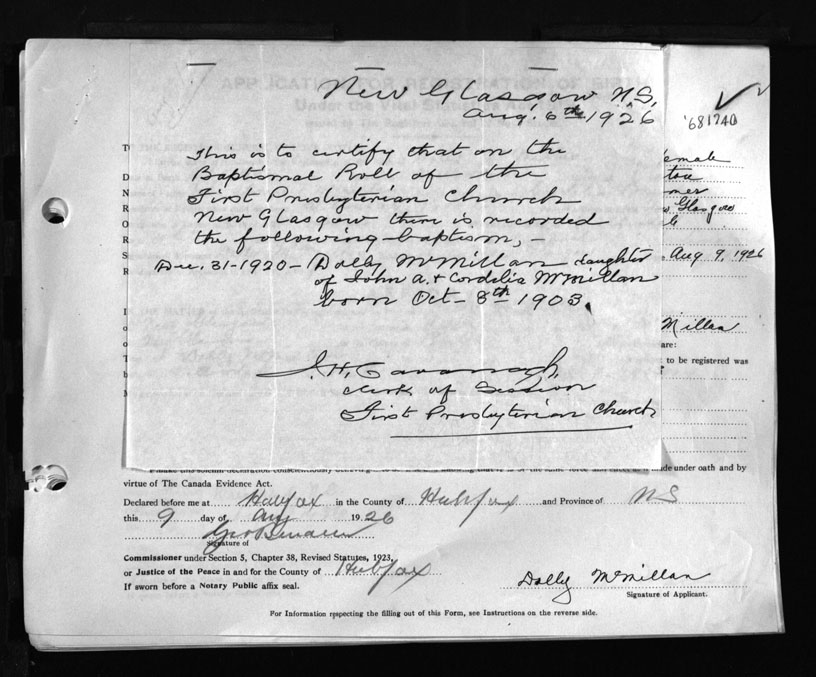 New Glasgow N.S.
Aug. 6th 1926
681740
This is to certify that on the
Baptismal Roll of the
First Presbyterian Church
New Glasgow there is recorded
the following baptism,-
Dec. 31-1920- Dolly McMillan daughter
of John A. & Cordelia McMillan
born Oct- 8th 1903
J.H. Cavanagh,
Clerk of Session
First Presbyterian Church
emale
s. Glasgow
Aug 9, 1926
Millan
are:
to be registered was
de under oath and by
virtue of The Canada Evidence Act.
Declared before me at Halifax in the County of Halifax and Province of NS
this 9 day of Aug 1926
Signature of
Commissioner under Section 5, Chapter 38, Revised Statutes, 1923,
or Justice of the Peace in and for the County of Halifax
If sworn before a Notary Public affix seal.
Dolly McMillan
Signature of Applicant.
For Information respecting the filling out of this Form, see Instructions on the reverse side.